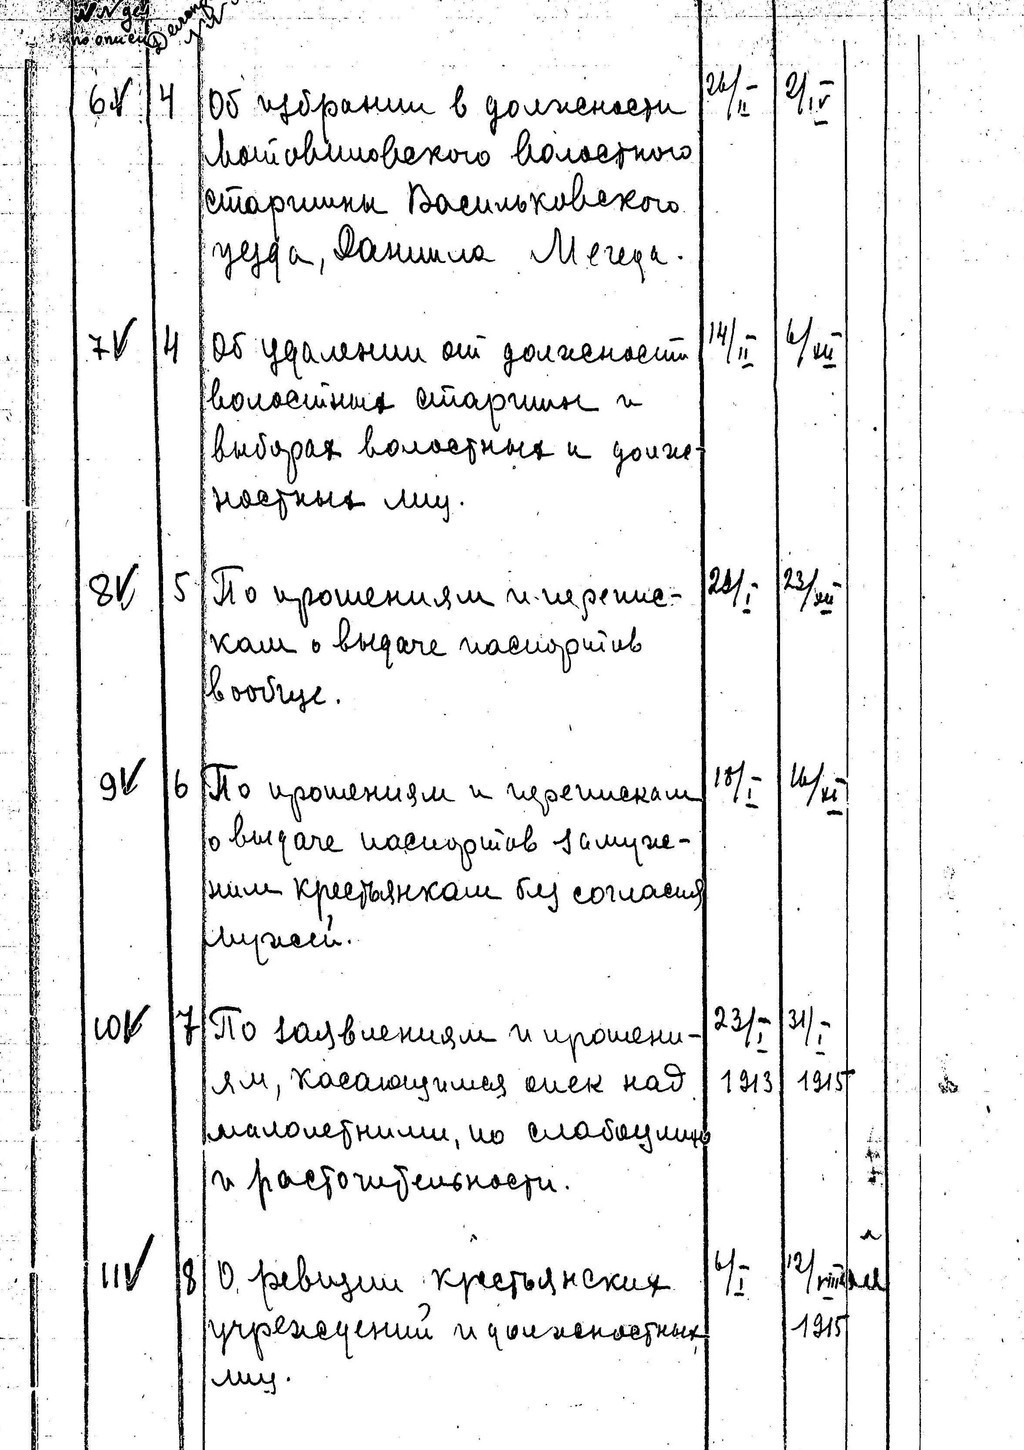 №№ дел
по описи
6 4 Об избрании в должности 26/II 2/IV
Мотовиловского волостного
старшины Васильковского
уезда, Даниила Мегеда.
7 4 Об удалении от должности 14/II 6/XII
волостных старшин и
выборах волостных и долж-
ностных лиц.
8 5 По прошениям и перепис- 23/XII
кам о выдаче паспортов
вообще.
9 6 По прошениям и перепискам 18/I 16/XI
о выдаче паспортов замуж-
ним крестьянкам без согласия
мужей.
10 7 По заявлениям и прошени- 23/I 31/I
ям, касающимся опек над 1913 1915
малолетними, по слабоумию
и расточительности.
11 8 О ревизии крестьянских 6/I 12/VIII
учреждений и должностных 1915
лиц.